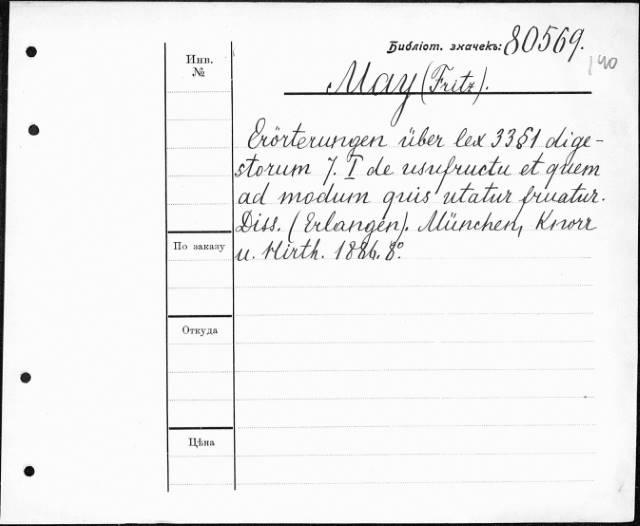 Библіот. значекъ: 80569.
140
Инв. №
May (Fritz).
Erörterungen über lex 33 § 1 dige-
storum 7. I de usufructu et quem
ad modum quis utatur fruatur.
Diss. (Erlangen). München, Knorr
u. Hirth. 1886. 8º.
По заказу
Откуда
Цѣна